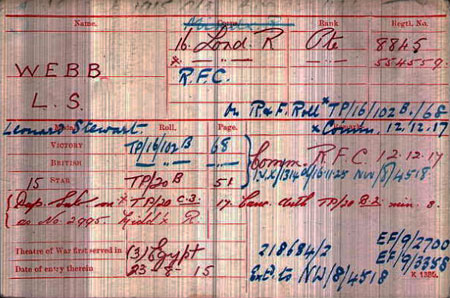 Name. Corps. Rank Regtl. No.
16. Lond. R Pte 8845
x " 554559.
WEBB R.F.C.
L. S. on R & F. Roll x TP/16/102 B./68
x Comm. 12.12.17
Leonard Stewart. Roll. Page.
VICTORY TP/16/102B 68
BRITISH " "
Comm. R.F.C 12.12.17
15 STAR TP/20 B 51
NW/8/4518.
on x TP/20 C.2. 17. Canc. auth TP/20 B.2. min. 8.
as No. 2995 Midd'x R.
Theatre of War first served in (3) Egypt
Date of entry therein 15
218684/2 EF/9/2700
EF/9/3358
E.F. to NW/8/4518
K 1380.